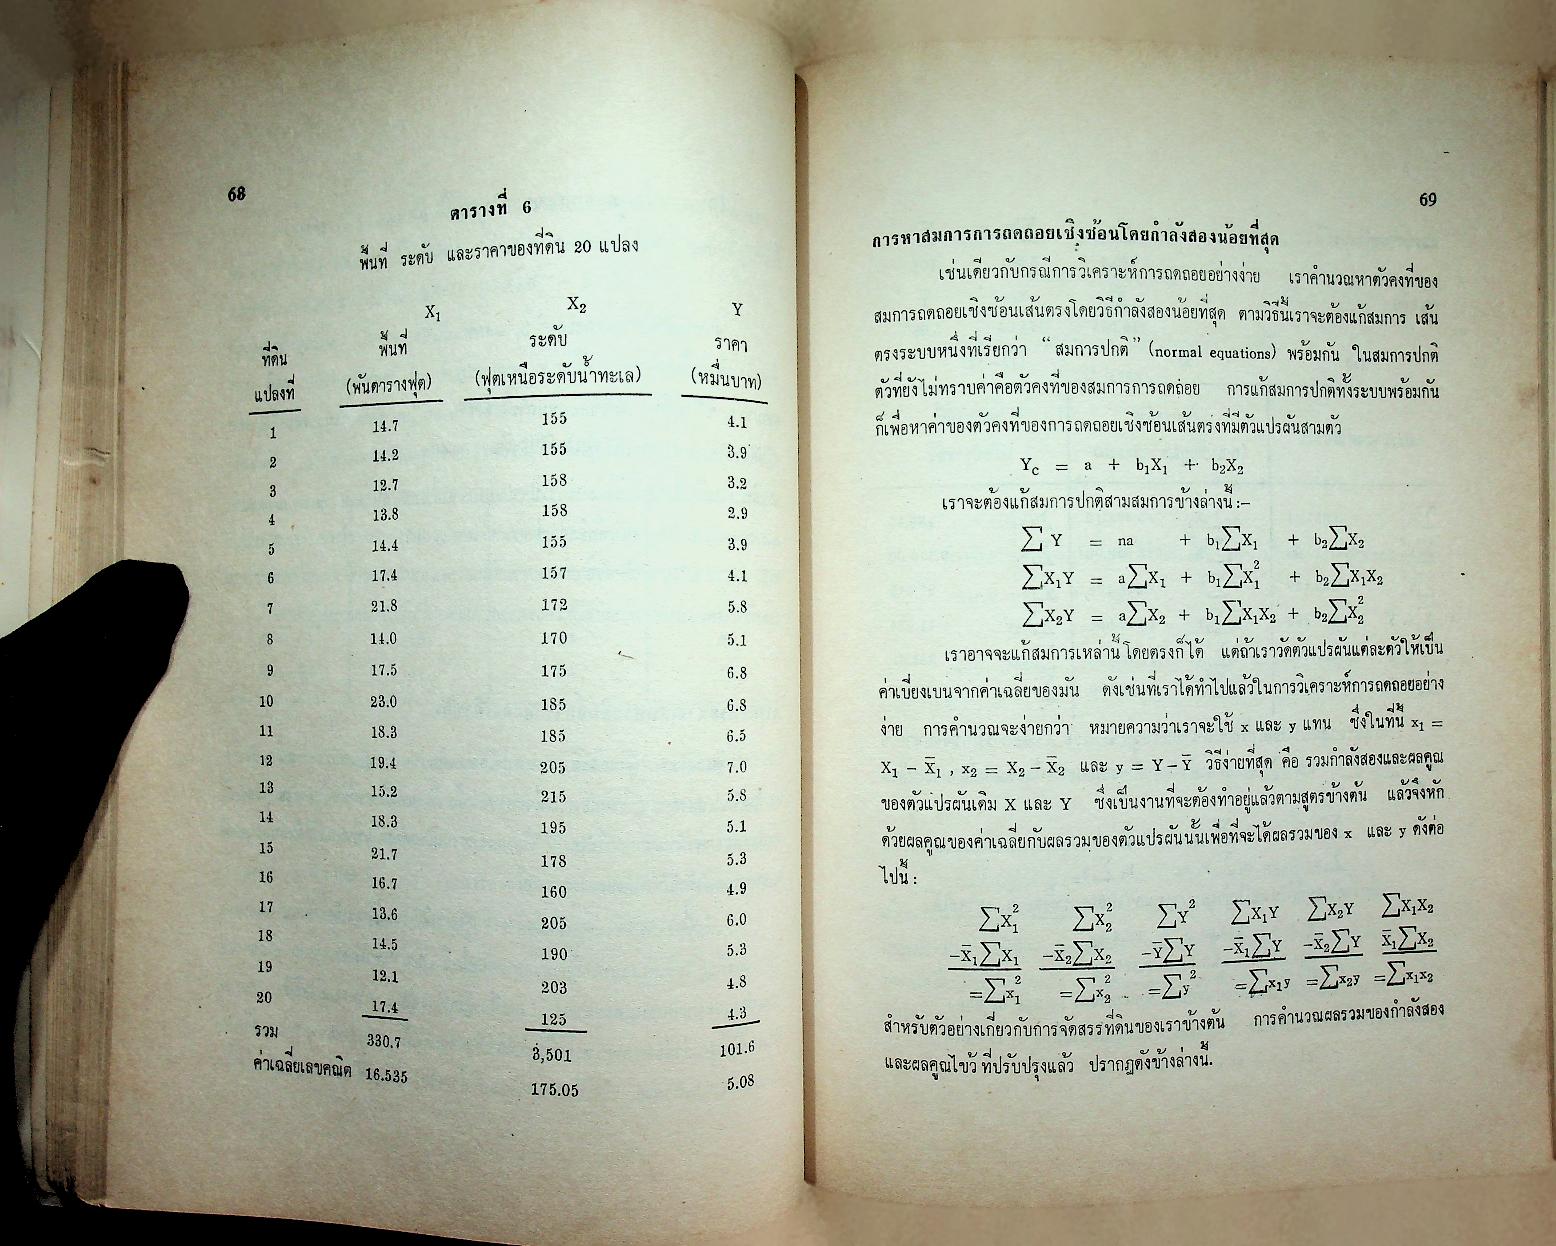 68
ตารางที่ 6
พื้นที่ ระดับ และราคาของที่ดิน 20 แปลง
X₁ X₂ Y
ที่ดิน พื้นที่ ระดับ ราคา
แปลงที่ (พันตารางฟุต) (ฟุตเหนือระดับน้ำทะเล) (หมื่นบาท)
1 14.7 155 4.1
2 14.2 155 3.9
3 12.7 158 3.2
4 13.8 158 2.9
5 14.4 155 3.9
6 17.4 157 4.1
7 21.8 172 5.8
8 14.0 170 5.1
9 17.5 175 6.8
10 23.0 185 6.8
11 18.3 185 6.5
12 19.4 205 7.0
13 15.2 215 5.8
14 18.3 195 5.1
15 21.7 178 5.3
16 16.7 160 4.9
17 13.6 205 6.0
18 14.5 190 5.3
19 12.1 203 4.8
20 17.4 125 4.3
รวม 330.7 3,501 101.6
ค่าเฉลี่ยเลขคณิต 16.535 175.05 5.08
69
การหาสมการการถดถอยเชิงซ้อนโดยกำลังสองน้อยที่สุด
เช่นเดียวกับกรณีการวิเคราะห์การถดถอยอย่างง่าย เราคำนวณหาตัวคงที่ของ
สมการถดถอยเชิงซ้อนเส้นตรงโดยวิธีกำลังสองน้อยที่สุด ตามวิธีนี้เราจะต้องแก้สมการ เส้น
ตรงระบบหนึ่งที่เรียกว่า “สมการปกติ” (normal equations) พร้อมกัน ในสมการปกติ
ตัวที่ยังไม่ทราบค่าคือตัวคงที่ของสมการการถดถอย การแก้สมการปกติทั้งระบบพร้อมกัน
ก็เพื่อหาค่าของตัวคงที่ของการถดถอยเชิงซ้อนเส้นตรงที่มีตัวแปรผันสามตัว
Yc = a + b₁X₁ + b₂X₂
เราจะต้องแก้สมการปกติสามสมการข้างล่างนี้ :–
∑Y = na + b₁∑X₁ + b₂∑X₂
∑X₁Y = a∑X₁ + b₁∑X₁² + b₂∑X₁X₂
∑X₂Y = a∑X₂ + b₁∑X₁X₂ + b₂∑X₂²
เราอาจจะแก้สมการเหล่านี้โดยตรงก็ได้ แต่ถ้าเราวัดตัวแปรผันแต่ละตัวให้เป็น
ค่าเบี่ยงเบนจากค่าเฉลี่ยของมัน ดังเช่นที่เราได้ทำไปแล้วในการวิเคราะห์การถดถอยอย่าง
ง่าย การคำนวณจะง่ายกว่า หมายความว่าเราจะใช้ x และ y แทน ซึ่งในที่นี้ x₁ =
X₁ – X̄₁ , x₂ = X₂ – X̄₂ และ y = Y – Ȳ วิธีง่ายที่สุด คือ รวมกำลังสองและผลคูณ
ของตัวแปรผันเดิม X และ Y ซึ่งเป็นงานที่จะต้องทำอยู่แล้วตามสูตรข้างต้น แล้วจึงหัก
ด้วยผลคูณของค่าเฉลี่ยกับผลรวมของตัวแปรผันนั้นเพื่อที่จะได้ผลรวมของ x และ y ดังต่อ
ไปนี้ :
∑X₁² ∑X₂² ∑Y² ∑X₁Y ∑X₂Y ∑X₁X₂
–X̄₁∑X₁ –X̄₂∑X₂ –Ȳ∑Y –X̄₁∑Y –X̄₂∑Y X̄₁∑X₂
=∑x₁² =∑x₂² =∑y² =∑x₁y =∑x₂y =∑x₁x₂
สำหรับตัวอย่างเกี่ยวกับการจัดสรรที่ดินของเราข้างต้น การคำนวณผลรวมของกำลังสอง
และผลคูณไขว้ ที่ปรับปรุงแล้ว ปรากฏดังข้างล่างนี้.